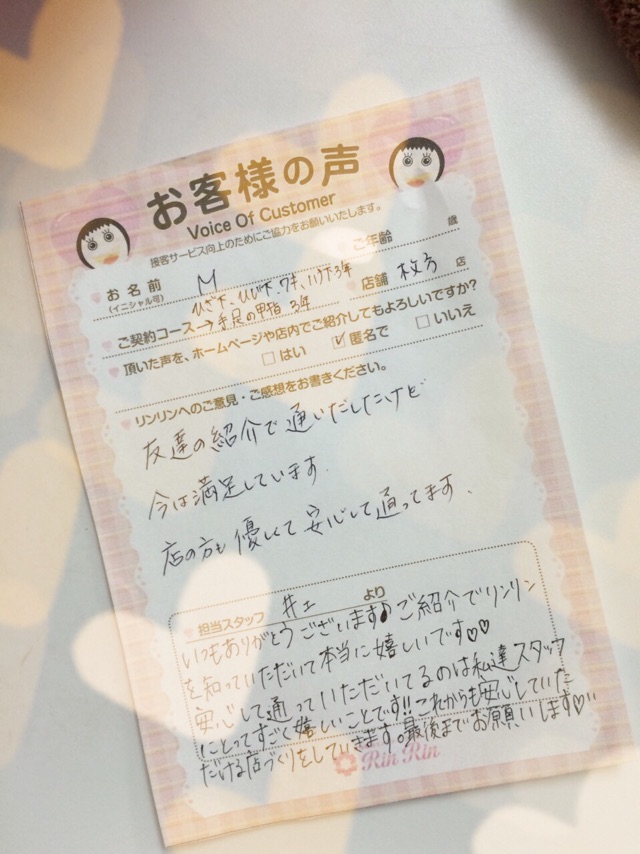 お客様の声
Voice Of Customer
接客サービス向上のためにご協力をお願いいたします。
お名前 M ご年齢 歳
(イニシャル可)
ひざ下、ひじ下、ワキ、ハイウエ3年
ご契約コース→手足の甲指 3年 店舗 枚方 店
頂いた声を、ホームページや店内でご紹介してもよろしいですか?
□はい ☑匿名で □いいえ
リンリンへのご意見・ご感想をお書きください。
友達の紹介で通いだしたけど
今は満足しています.
店の方も優しくて安心して通ってます、
担当スタッフ 井上 より
いつもありがとうございます♪ご紹介でリンリン
を知っていただいて本当に嬉しいです♡♡
安心して通っていただいてるのは私達スタッフ
にとってすごく嬉しいことです!!これからも安心していた
だける店づくりをしていきます。最後までお願いします♡
Rin Rin